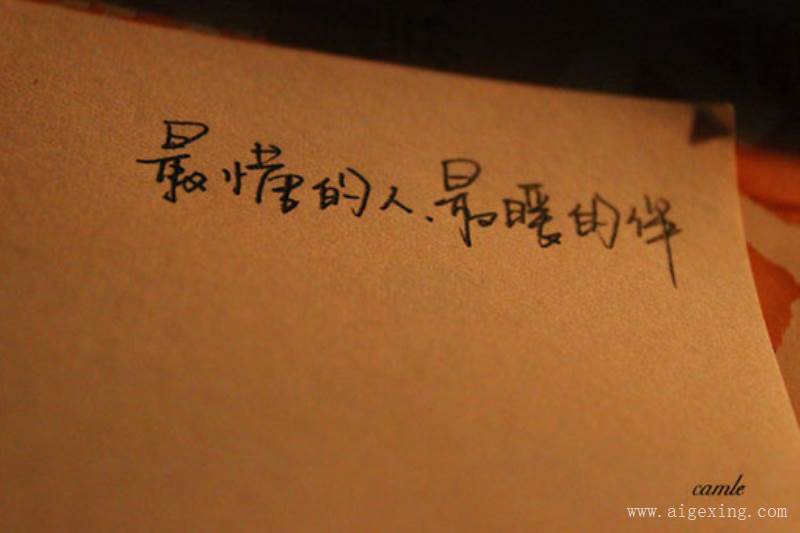 最懂的人、最暖的伴
camle
www.aigexing.com